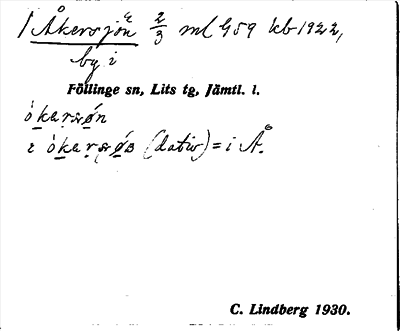 1 Åkersjön 2/3 ml G59 kb 1922,
by i
Föllinge sn, Lits tg, Jämtl. l.
ȯkaṛsøn
ɩ ȯkaṛsøn (dativ) = i Å.
C. Lindberg 1930.